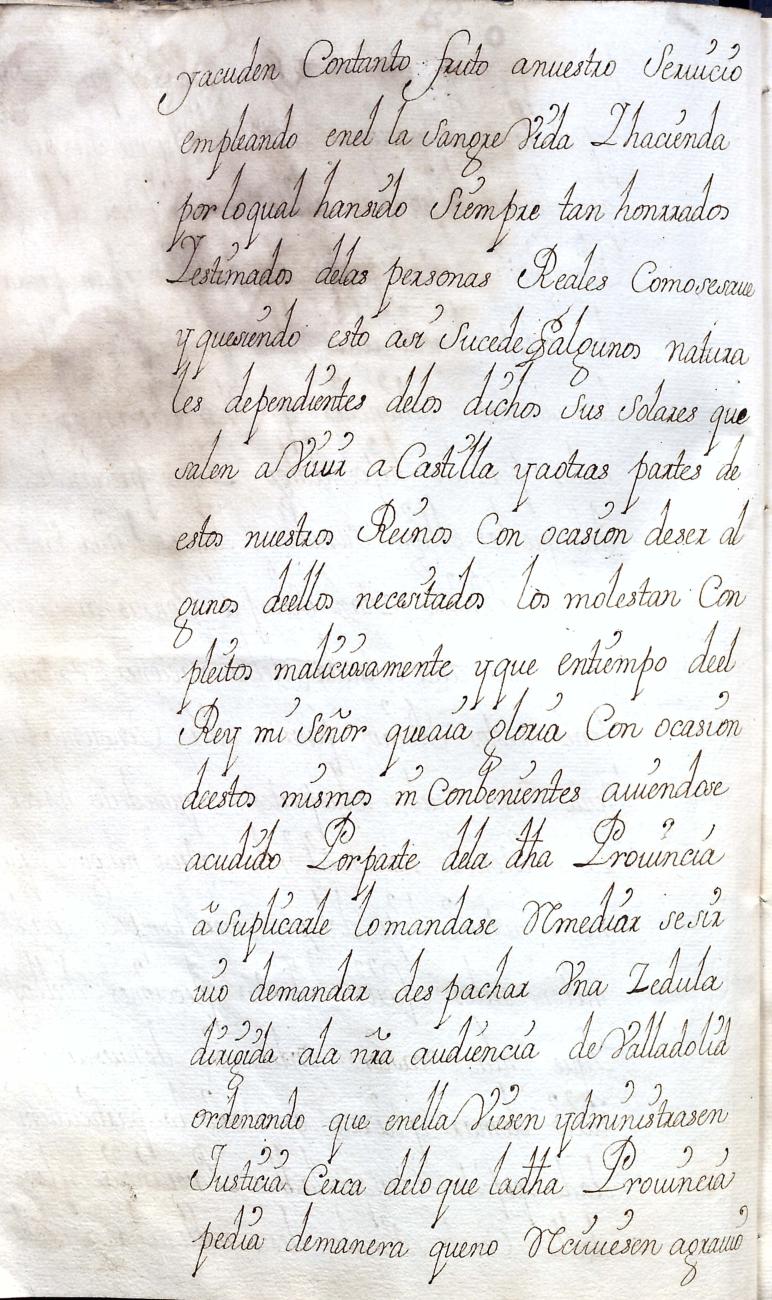 yacuden Contanto fruto anuestro Seruicio
empleando enel la Sangre Vida Y hacienda
por loqual hansido Siempre tan honrrados
Yestimados delas personas Reales Comosesaue
yquesiendo esto asi Sucede q algunos natura
les dependientes delos dichos Sus Solares que
salen aViuir aCastilla yaotras partes de
estos nuestros Reinos Con ocasion deser al
gunos deellos necesitados los molestan Con
pleitos maliciosamente yque entiempo deel
Rey mi Señor queaia gloria Con ocasion
deestos mismos in Conbenientes auiendose
acudido Porparte dela dha Prouincia
a Suplicarle lomandase Remediar sesir
uio demandar des pachar Vna Zedula
dirigida ala nra audiencia deValladolid
ordenando que enella Viesen ydministrasen
Justicia Cerca delo que ladha Prouincia
pedia demanera queno Reciuiesen agrauio